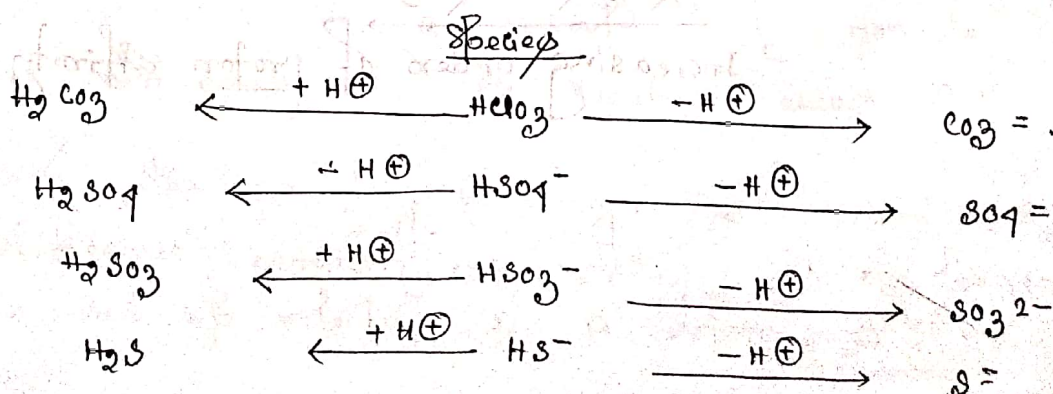 Species
H2CO3 ← + H⊕ HClO3 − H⊕ → CO3 =
H2SO4 ← + H⊕ HSO4⁻ − H⊕ → SO4 =
H2SO3 ← + H⊕ HSO3⁻ − H⊕ → SO3 2−
H2S ← + H⊕ HS⁻ − H⊕ → S =